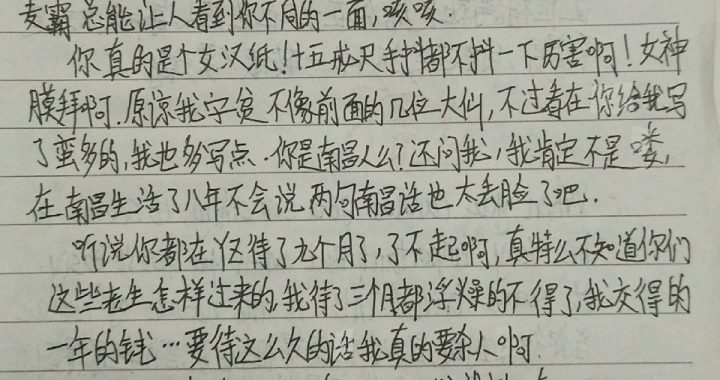 麦霸总能让人看到你不同的一面,咳咳.
你真的是个女汉纸!十五戒尺手抖都不抖一下厉害啊!女神
膜拜啊.原谅我字贫不像前面的几位大仙,不过看在你给我写
了蛮多的,我也多写点.你是南昌人么?还问我,我肯定不是喽,
在南昌生活了八年不会说两句南昌话也太丢脸了吧.
听说你都在YZ待了九个月了,了不起啊,真特么不知道你们
这些老生怎样过来的,我待了三个月都浮燥的不得了,我交得的
一年的钱…要待这么久的话我真的要杀人啊